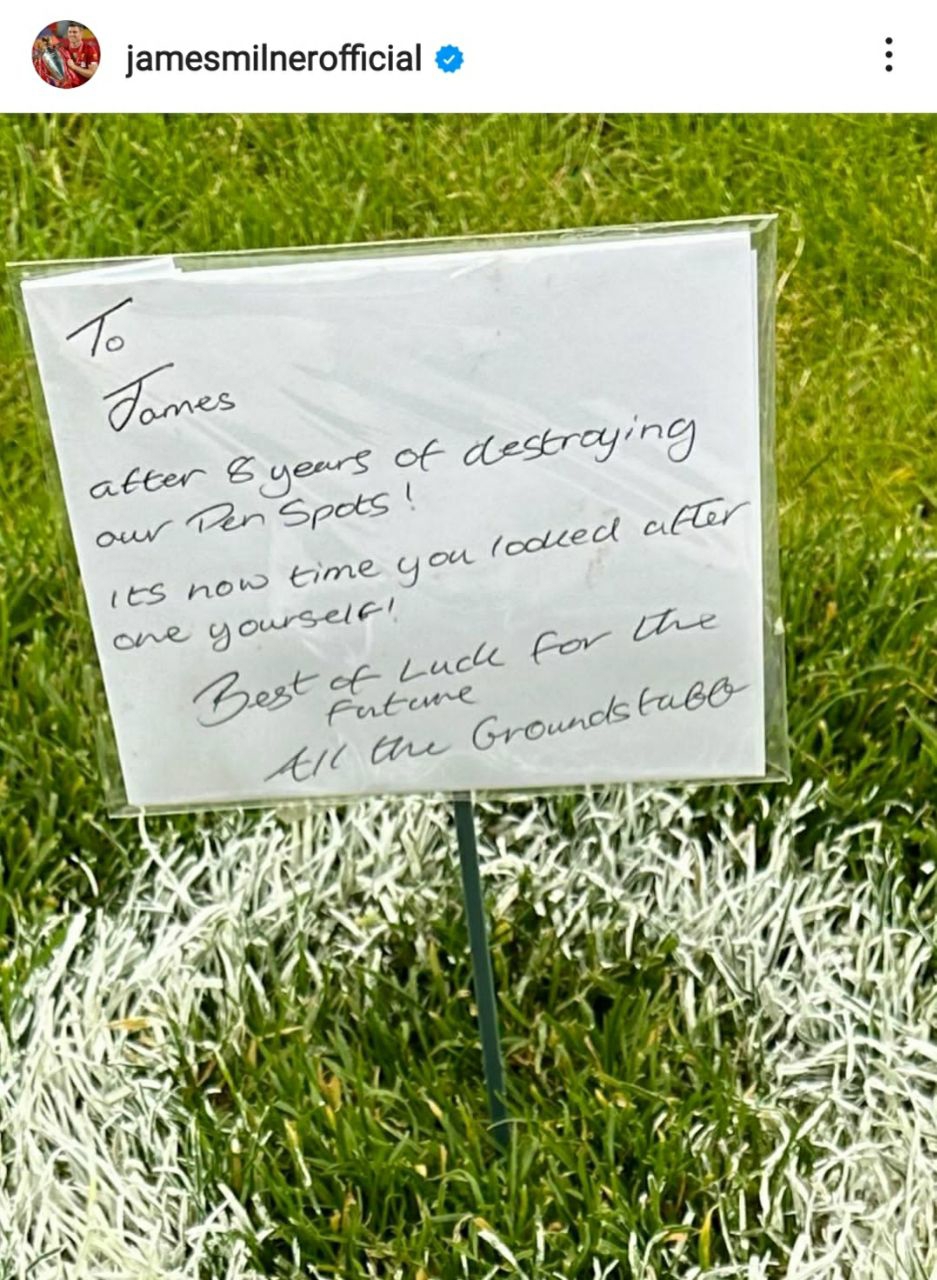 jamesmilnerofficial
To
James
after 8 years of destroying
our Pen Spots!
its now time you looked after
one yourself!
Best of Luck for the
Future
All the Groundstaff